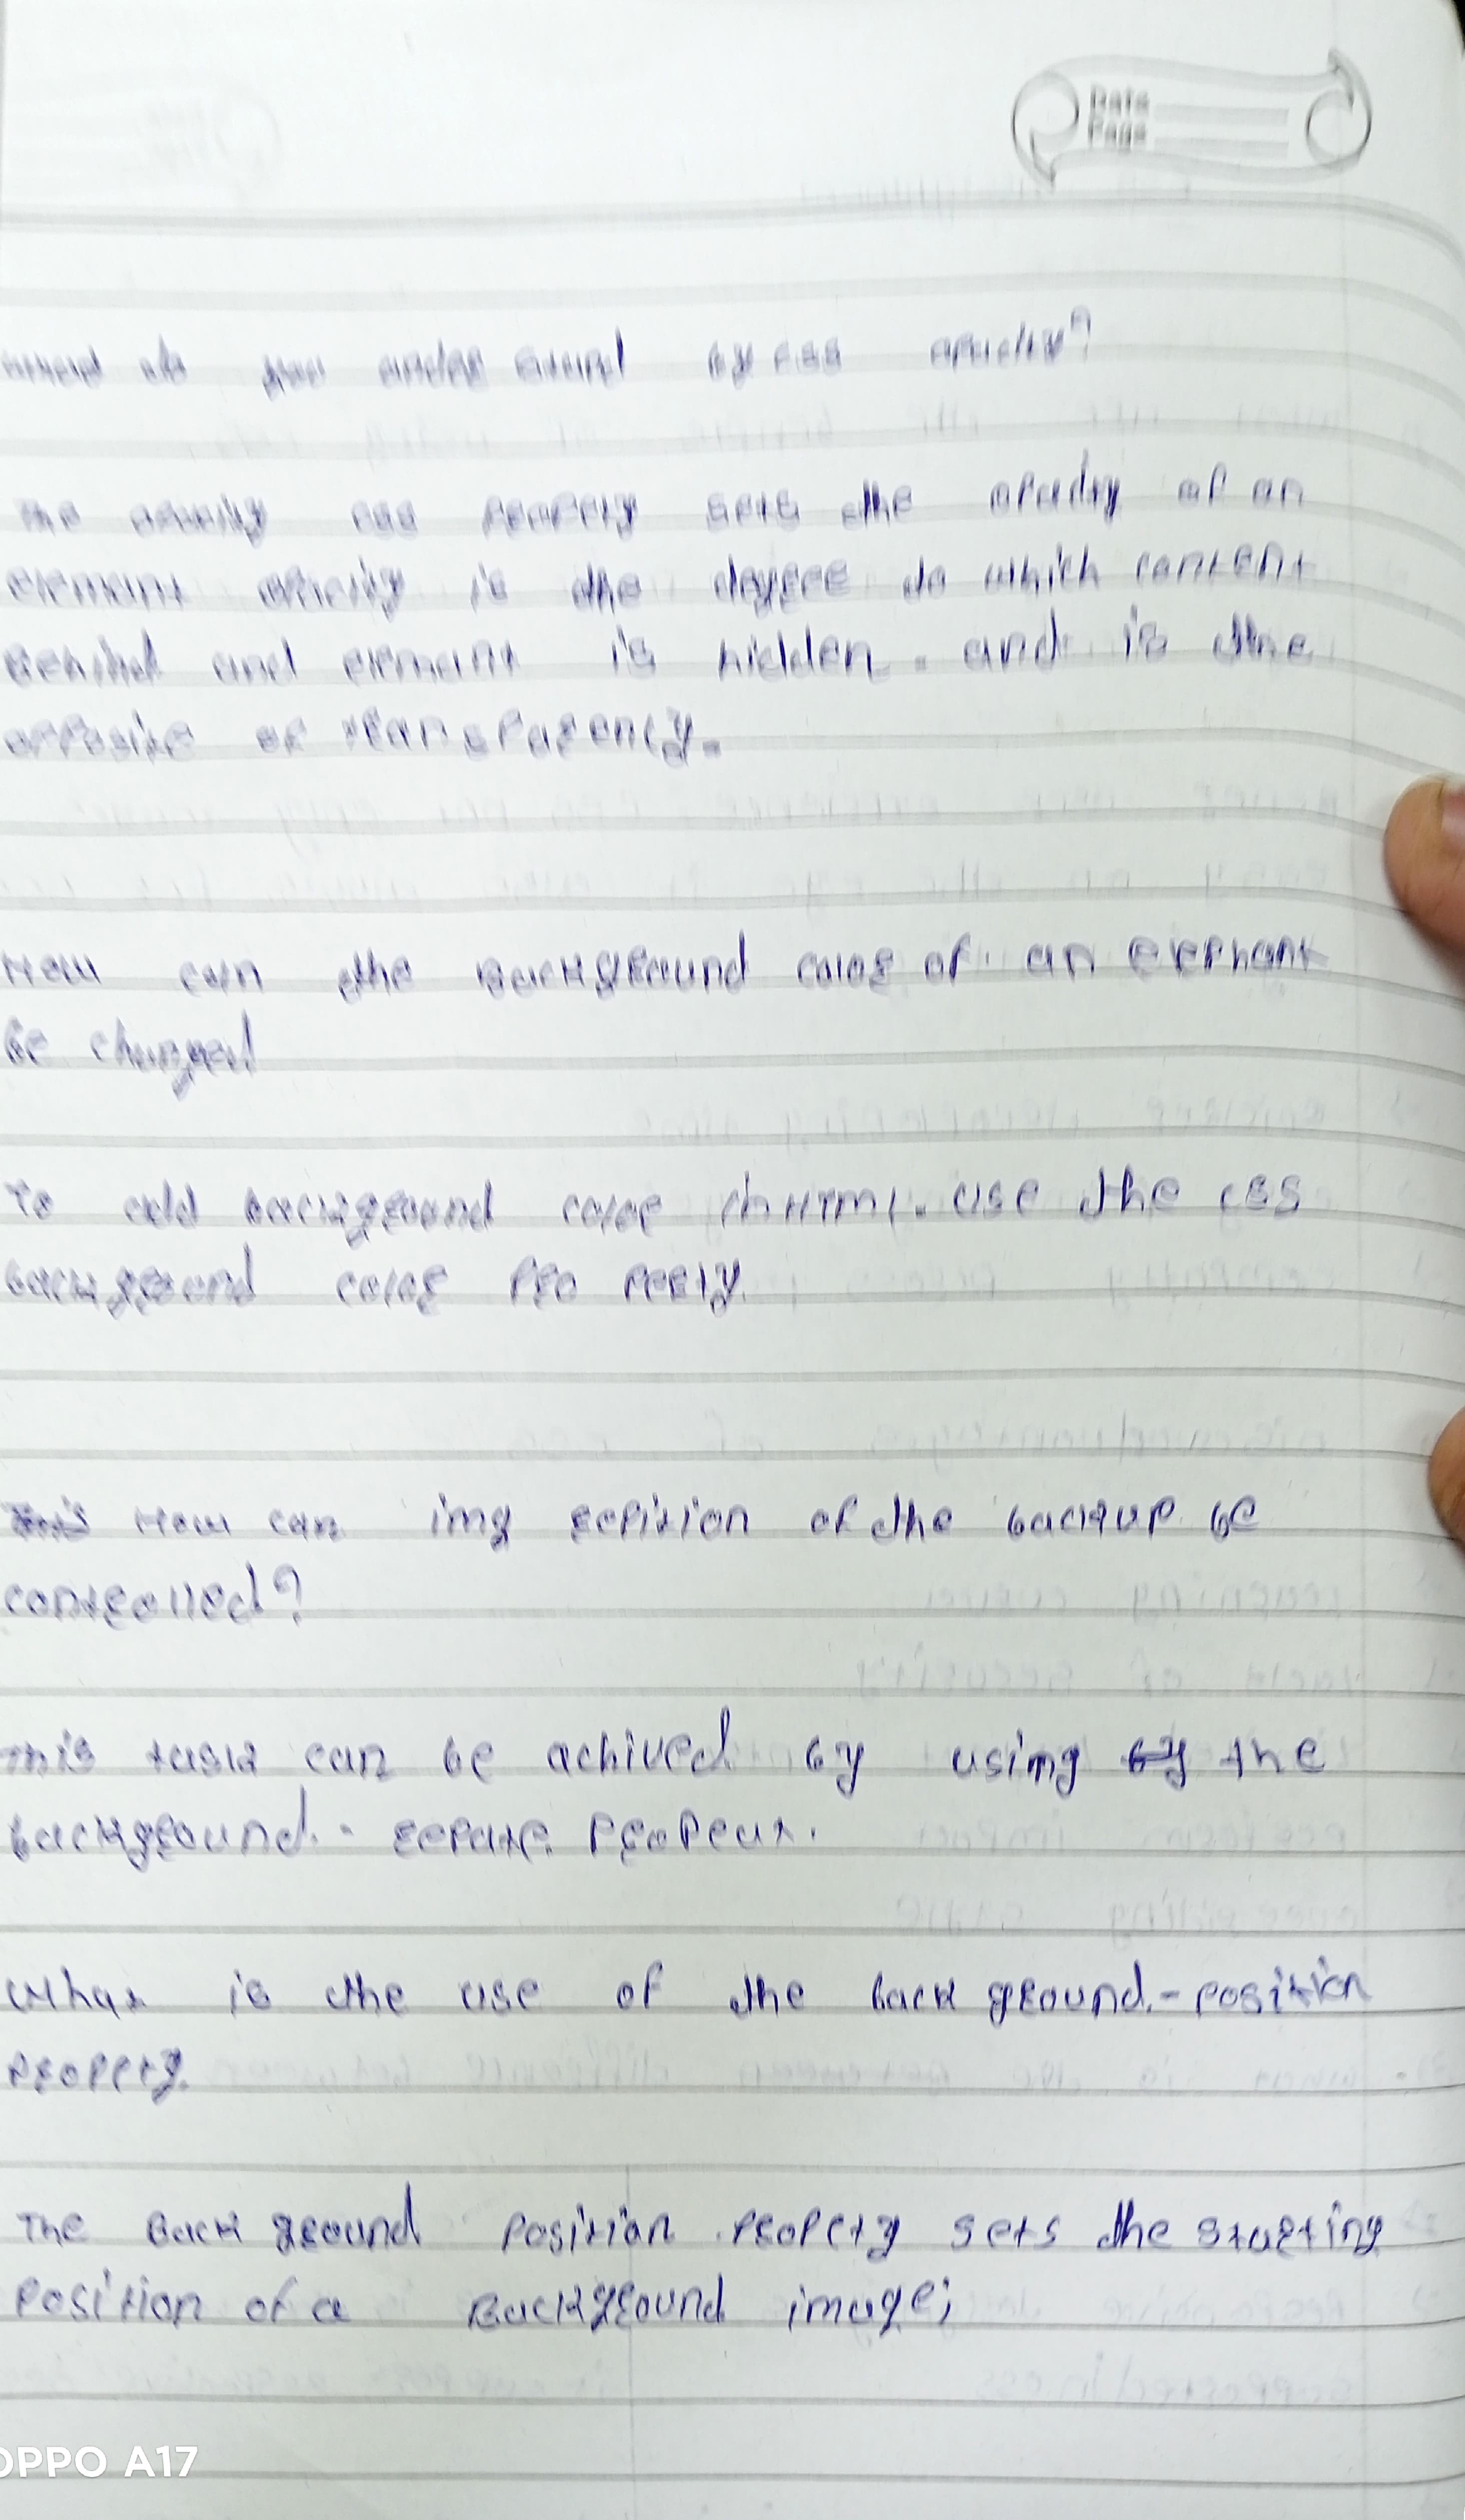 Date
Page
what do you understand by css opacity?
The opacity css property sets the opacity of an
elemant opacity is the degree to which content
Behind and elemant is hidden. and is the
opposite of transparency.
How can the Background color of an elemant
be changed
To add background color in HTML. use the CSS
background color pro perty.
How can img repition of the backup be
controlled?
This task can be achived by using by the
background. - repate.
What is the use of the back ground.-position
property.
The Back ground position property sets the starting
position of a Background image;
OPPO A17